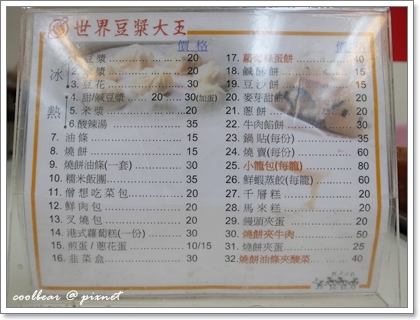 世界豆漿大王
價格
價格
冰
熱
1. 豆漿 20
2. 漿 20
3. 豆花 20
4. 甜/鹹豆漿 20 30(加蛋)
5. 米漿 20
6 酸辣湯 35
7. 油條 15
8. 燒餅 15
9. 燒餅油條(一套) 30
10. 糯米飯團 35
11. 僧想吃菜包 20
12. 鮮肉包 20
13. 叉燒包 20
14. 港式蘿蔔糕(一份) 30
15. 煎蛋/蔥花蛋 10/15
16. 韭菜盒 30
17. 蛋餅 40
18. 鹹酥餅 15
19. 豆沙餅 15
20. 麥芽甜餅 20
21. 蔥餅 20
22. 牛肉餡餅 35
23. 鍋貼(每份) 35
24. 燒賣(每份) 60
25. 小籠包(每籠) 80
26. 鮮蝦蒸餃(每籠) 60
27. 千層糕 20
28. 馬來糕 20
29. 饅頭夾蛋 20
30. 燒餅夾牛肉 50
31. 燒餅夾蛋 25
32. 燒餅油條夾酸菜 40
coolbear @ pixnet